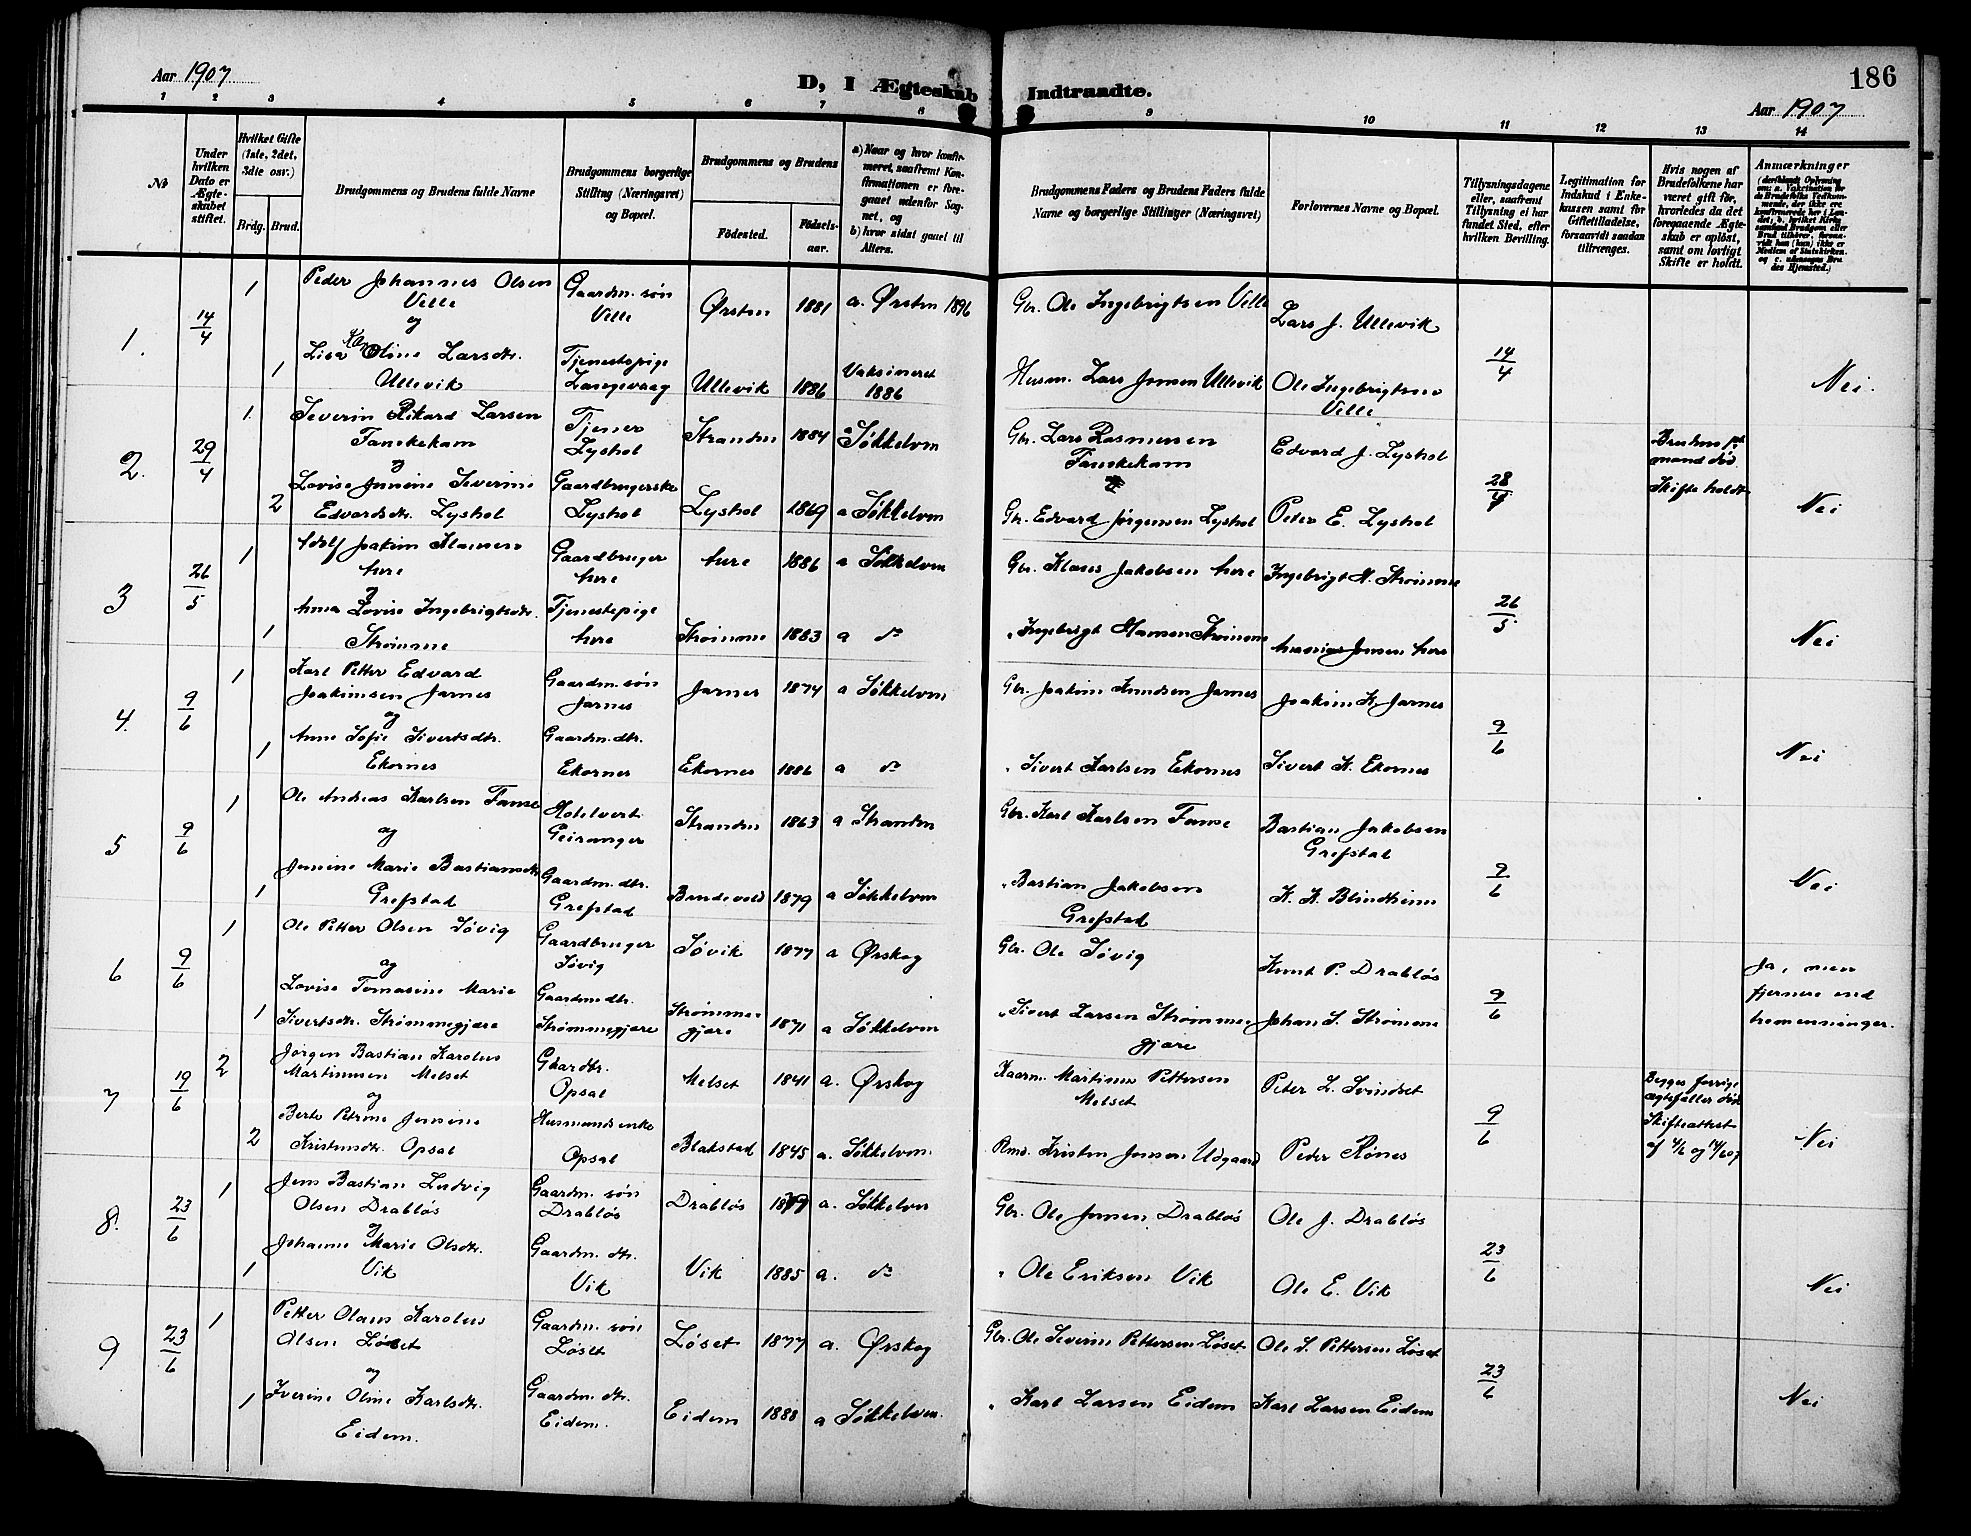 186
Aar 1907
D, I Ægteskab Indtraadte.
Aar 1907
1 2 3 4 5 6 7 8 9 10 11 12 13 14
№
Under hvilken Dato er Ægteskabet stiftet.
Hvilket Gifte (1ste, 2det, 3die osv.)
Brdg. Brud.
Brudgommens og Brudens fulde Navne
Brudgommens borgerlige Stilling (Næringsvei) og Bopæl.
Brudgommens og Brudens
Fødested.
Fødselsaar.
a) Naar og hvor konfirmeret, saafremt Konfirmationen er foregaaet udenfor Sognet, og
b) hvor sidst gaaet til Alters.
Brudgommens Faders og Brudens Faders fulde Navne og borgerlige Stillinger (Næringsvei)
Forlovernes Navne og Bopæl.
Tillysningsdagene eller, saafremt Tillysning ei har fundet Sted, efter hvilken Bevilling.
Legitimation for Indskud i Enkekassen samt for Giftetilladelse, forsaavidt saadan tiltrænges.
Hvis nogen af Brudefolkene har været gift før, hvorledes da det foregaaende Ægteskab er opløst, samt om lovligt Skifte er holdt.
Anmærkninger
1. 14/4 1 Peder Johannes Olsen Velle Gaardm. søn Velle Ørsten 1881 a. Ørsten 1896 Gbr. Ole Ingebrigtsen Velle Lars J. Ullevik
og
1 Lisa Oline Larsdtr. Ullevik Tjenestepige Langevaag Ullevik 1886 Vaksineret 1886 Husm. Lars Jonsen Ullevik Ole Ingebrigtsen Velle 14/4 Nei.
2. 29/4 1. Severin Rikard Larsen Fauskekam Tjener Lyshol Stranden 1884 a Søkkelven Gbr. Lars Rasmussen Fauskekam Edvard J. Lyshol
og
2 Lovise Jensine Severine Edvardsdtr. Lyshol Gaardbrugerske Lyshol Lyshol 1869 a Søkkelven Gbr. Edvard Jørgensen Lyshol Peter E. Lyshol 28/4 Skifte holdt Nei
3 26/5 1 Adolf Joakim Klausen Aure Gaardbruger Aure Aure 1886 a Søkkelven Gbr. Klaus Jakobsen Aure Ingebrigt H. Strømme
og
1 Anna Lovise Ingebrigtsdtr. Strømme Tjenestepige Aure Strømme 1883 a do " Ingebrigt Hansen Strømme Jensen Aure 26/5 Nei
4. 9/6 1 Karl Petter Edvard Joakimsen Jarnes Gaardm. søn Jarnes Jarnes 1874 a Søkkelven Gbr. Joakim Knudsen Jarnes Joakim K. Jarnes
og
1 Anne Sofie Sivertsdtr. Ekornes Gaardm. dtr. Ekornes Ekornes 1886 a do " Sivert Karlsen Ekornes Sivert K. Ekornes 9/6 Nei
5 9/6 1 Ole Andreas Karlsen Hotelvert Geiranger Stranden 1863 a Stranden Gbr. Karl Karlsen Bastian Jakobsen Grefstad
og
1 Jensine Marie Bastiansdtr. Grefstad Gaardm. dtr. Grefstad Brudevold 1879 a Søkkelven " Bastian Jakobsen Grefstad K. K. Blindheim 9/6 Nei
6 9/6 1 Ole Petter Olsen Søvig Gaardbruger Søvig Søvik 1877 a Ørskog Gbr. Ole Søvig Knut P. Drabløs
og
1 Lovise Tomasine Marie Sivertsdtr. Strømmegjære Gaardm. dtr. Strømmegjære Strømmegjære 1871 a Søkkelven " Sivert Larsen Strømmegjære Johan S. Strømme 9/6 Ja, men fjernere end tremenninger.
7 19/6 2 Jørgen Bastian Karolus Martinusen Melset Opsal Melset 1841 a. Ørskog Kaarm. Martinus Pettersen Melset Peter L. Svindset
og
2 Berte Petrine Jensine Kristensdtr. Opsal Husmandsenke Opsal Blakstad 1845 a. Søkkelven. Kristen Jensen Udgaard Peder Rønes 9/6 Begges forrige ægtefæller død Skifteattest af Nei
8. 23/6 1 Jens Bastian Ludvig Olsen Drabløs Gaardm. søn Drabløs Drabløs 1879 a. Søkkelven Gbr. Ole Jensen Drabløs Ole J. Drabløs
og
1 Johanne Marie Olsdtr. Vik Gaardm. dtr. Vik Vik 1885 a. do " Ole Eriksen Vik Ole E. Vik 23/6 Nei
9 23/6 1 Petter Olaus Karolus Olsen Løset Gaardm. søn Løset Løset 1877 a. Ørskog Gbr. Ole Severin Pettersen Løset Ole S. Pettersen Løset
og
1 Iverine Oline Karlsdtr. Eidem. Gaardm. dtr. Eidem. Eidem 1888 a Søkkelven. " Karl Larsen Eidem Karl Larsen Eidem 23/6 Nei